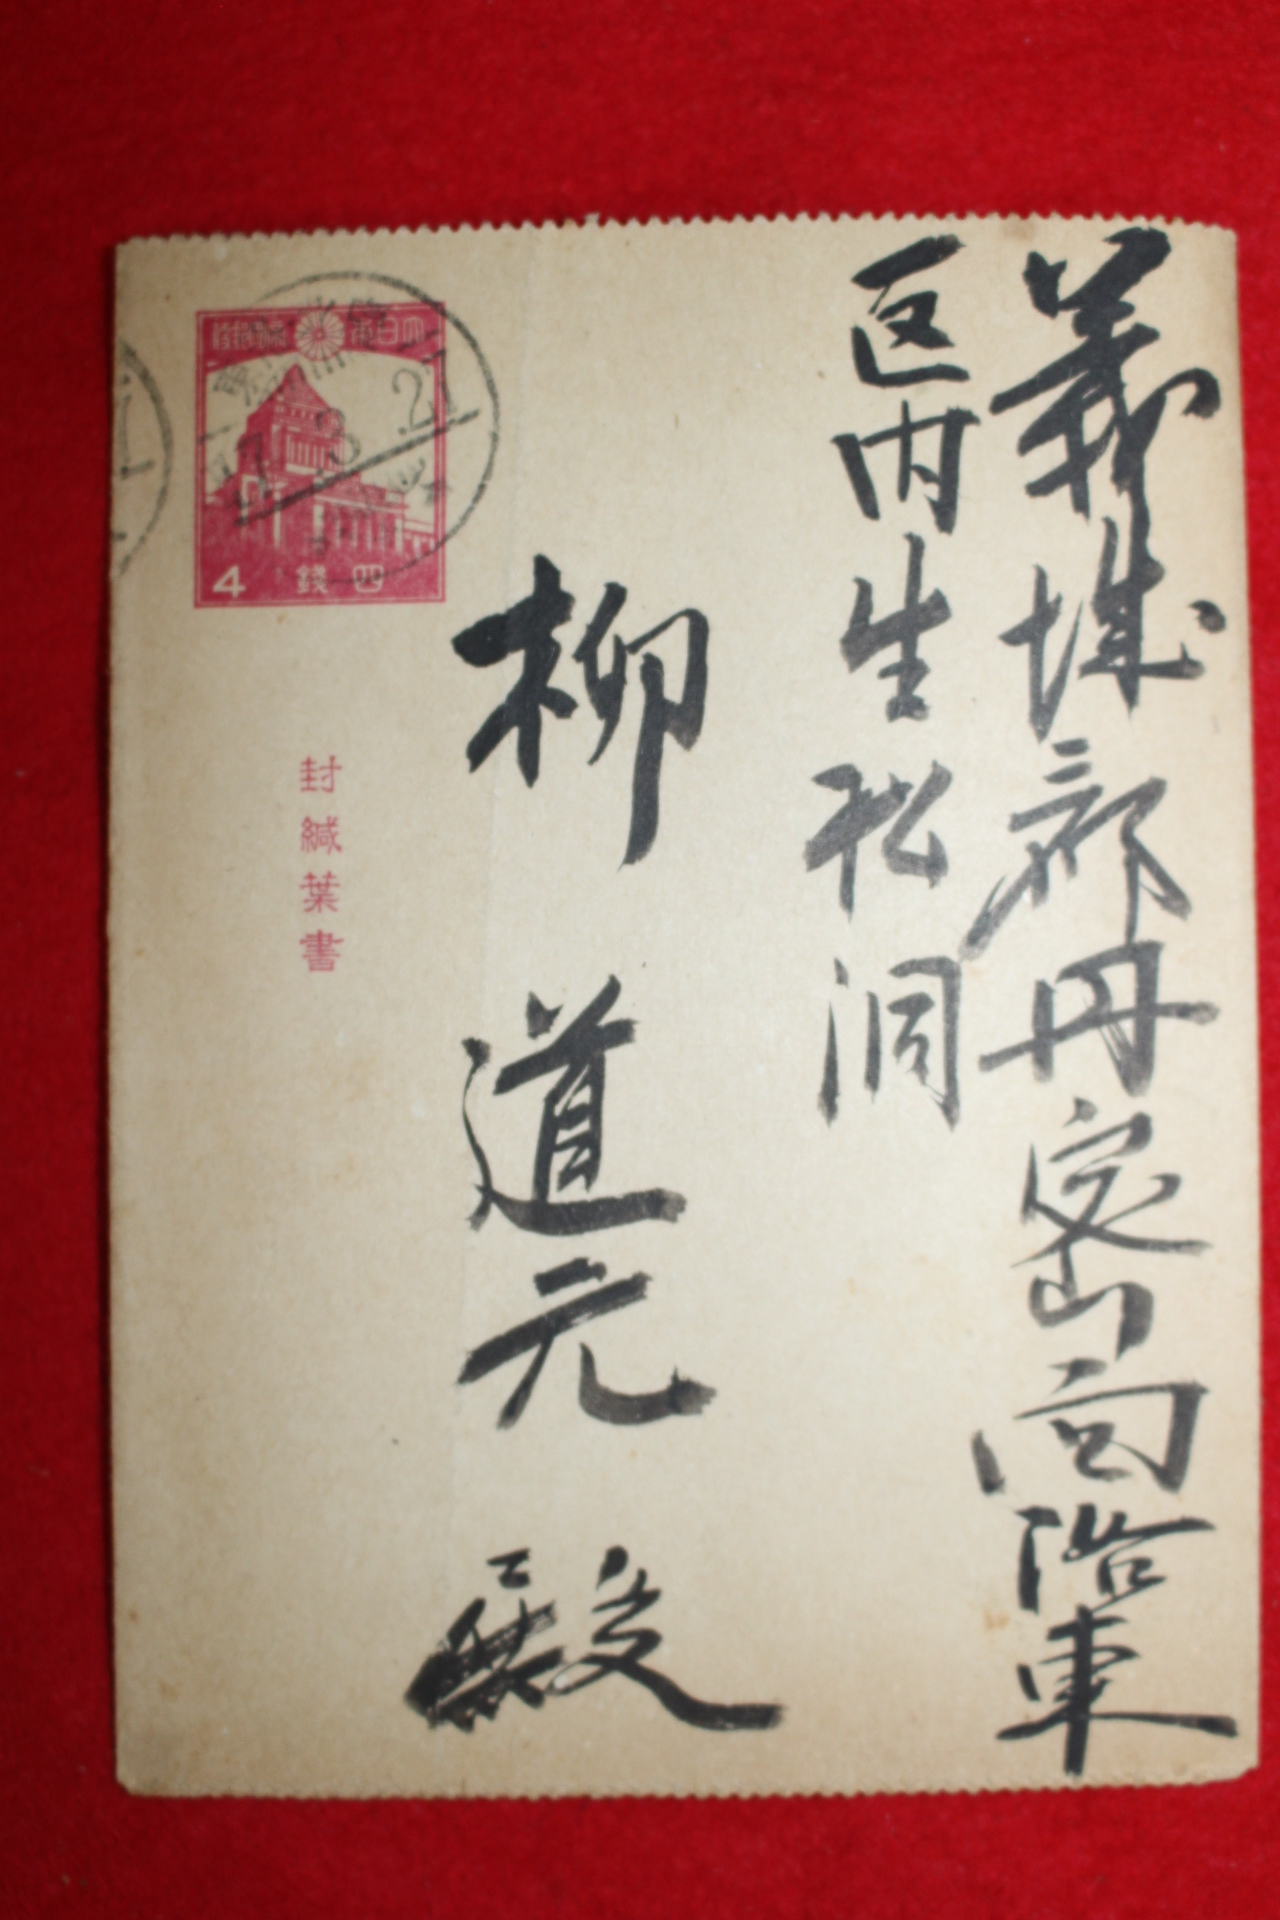 義城郡丹密面洛東
区内生松洞
柳道元殿
大日本帝國郵便
四錢 4
封緘葉書